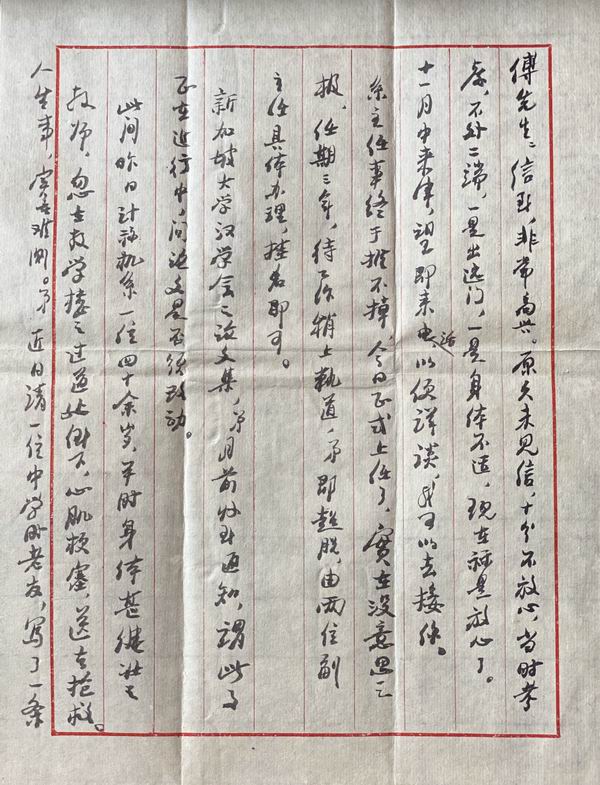 傅先生：信到，非常高兴。原久未见信，十分不放心，当时考
虑，不外二端，一是出远门，一是身体不适，现在祘是放心了。
十一月中来津，望即来电话以便详谈，我可以去接你。
系主任事终于推不掉，今日正式上任了，实在没意思之
极，任期三年，待工作稍上轨道，弟即超脱，由两位副
主任具体办理，挂名即可。
新加坡大学汉学会之论文集，弟月前收到通知，谓此事
正在进行中，问论文是否须改动。
此间昨日计祘机系一位四十余岁，平时身体甚健壮之
教师，忽在教学楼之过道处倒下，心肌梗塞，送去抢救。
人生事，实在难测。弟近日请一位中学时老友，写了一条